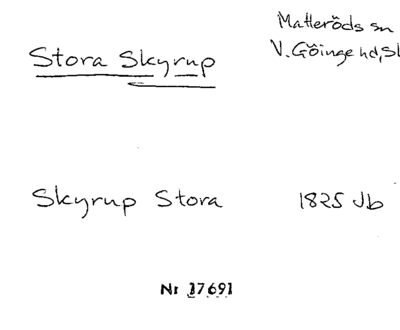 Matteröds sn
Stora Skyrup
V. Göinge hd, Sk
Skyrup Stora
1825 Jb
Nr 17691